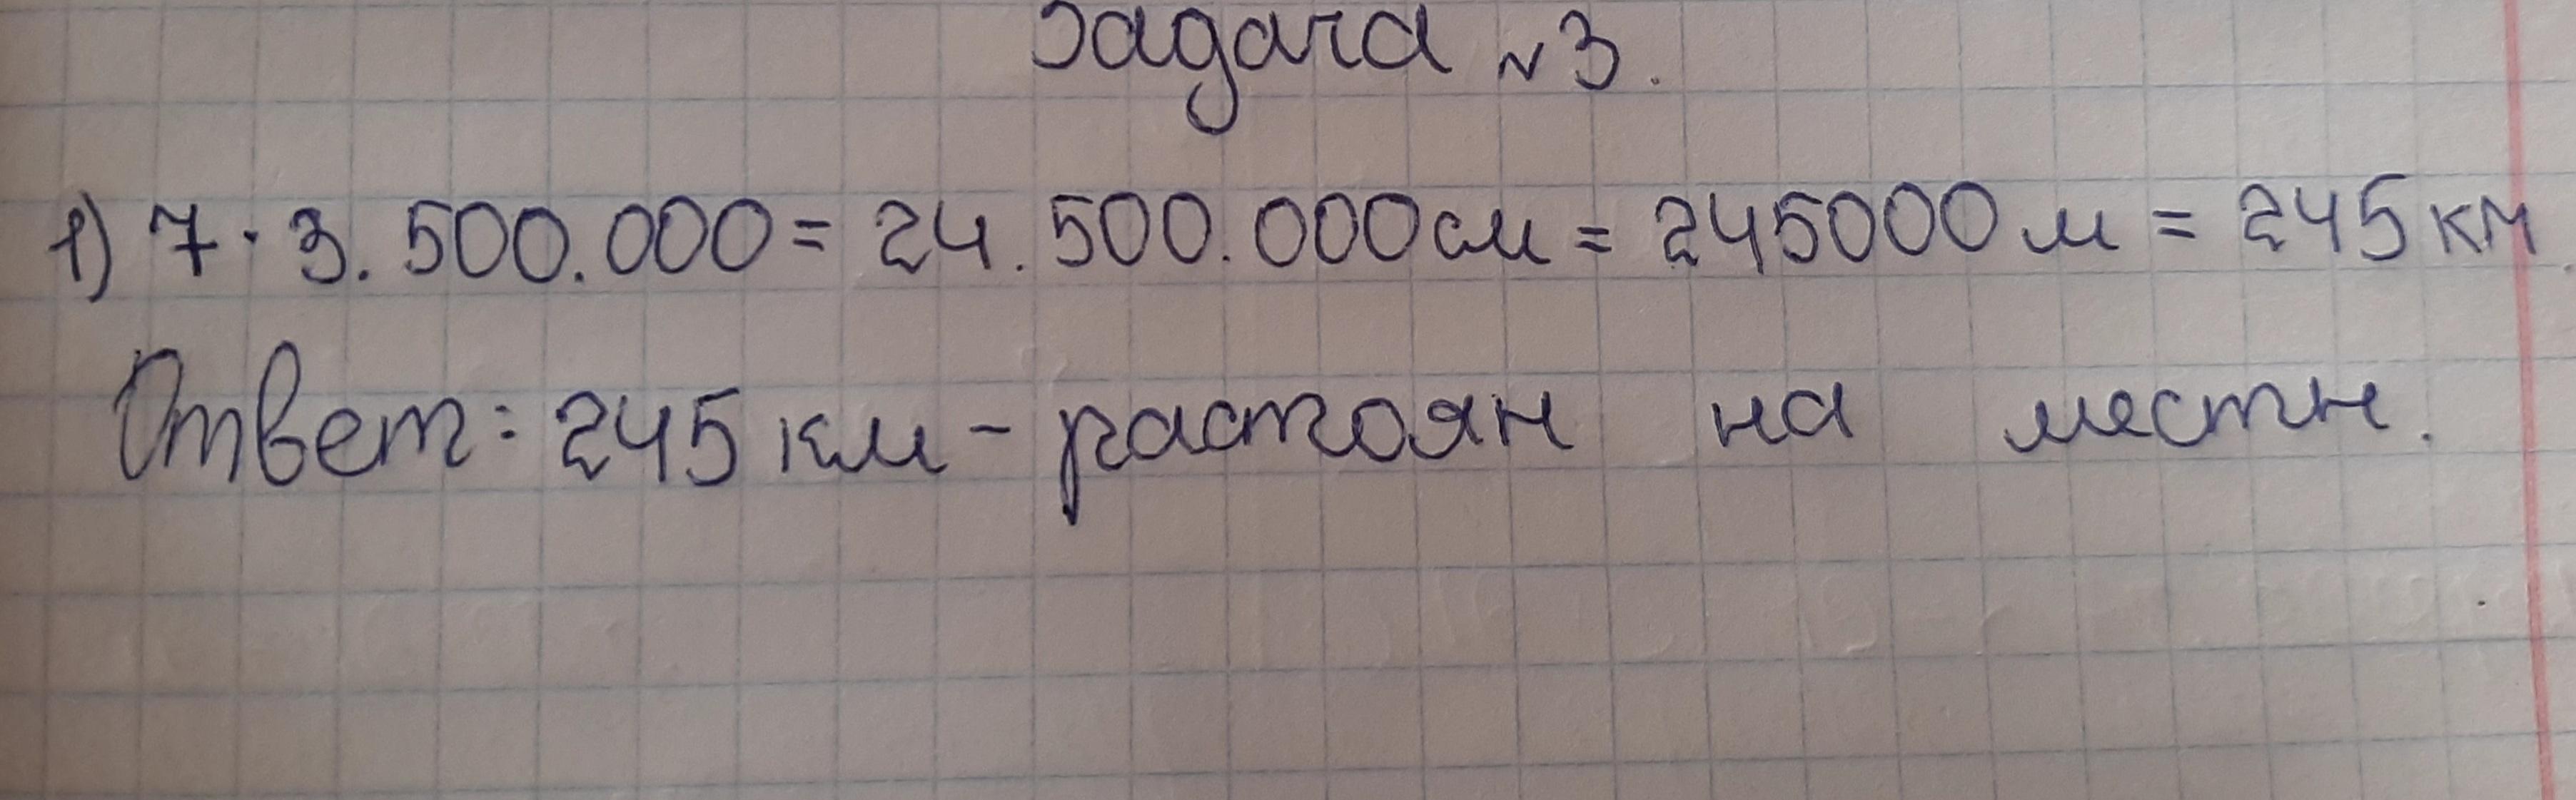 Задача №3.
1) 7·3.500.000=24.500.000см=245000м=245км.
Ответ: 245км-растоян на местн.